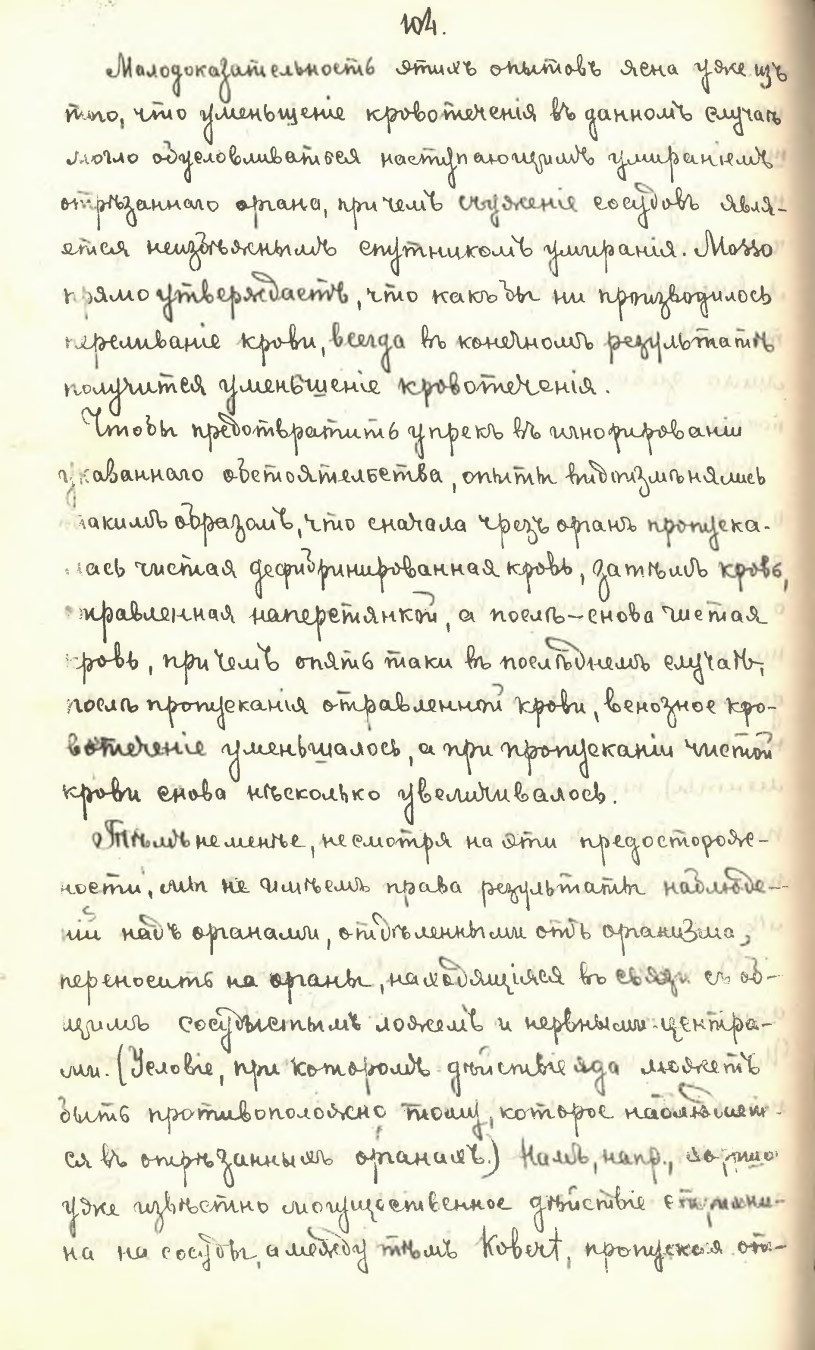 104.
Малодоказательность этихъ опытовъ ясна уже изъ
того, что уменьшеніе кровотеченія въ данномъ случаѣ
могло обусловливаться наступающимъ умираніемъ
отрѣзаннаго органа, при чемъ съуженіе сосудовъ явля-
ется неизбѣжнымъ спутникомъ умиранія. Mosso
прямо утверждаетъ, что какъ бы ни производилось
переливаніе крови, всегда въ конечномъ результатѣ
получится уменьшеніе кровотеченія.
Чтобы предотвратить упрекъ въ игнорированіи
указаннаго обстоятельства, опыты видоизмѣнялись
такимъ образомъ, что сначала чрезъ органъ пропуска-
лась чистая дефибринированная кровь, затѣмъ кровь,
отравленная наперстянкой, а послѣ – снова чистая
кровь, при чемъ опять таки въ послѣднемъ случаѣ,
послѣ пропусканія отравленной крови, венозное кро-
вотеченіе уменьшалось, а при пропусканіи чистой
крови снова нѣсколько увеличивалось.
Тѣмъ не менѣе, не смотря на эти предосторож-
ности, мы не имѣемъ права результаты наблюде-
ній надъ органами, отдѣленными отъ организма,
переносить на органы, находящіяся въ связи съ об-
щимъ сосудистымъ ложемъ и нервными центра-
ми. (Условіе, при которомъ дѣйствіе яда можетъ
быть противоположно тому, которое наблюдает-
ся въ отрѣзанныхъ органахъ.) Намъ, напр., хорошо
уже извѣстно могущественное дѣйствіе стрихни-
на на сосуды, а между тѣмъ Kobert, пропуская от-